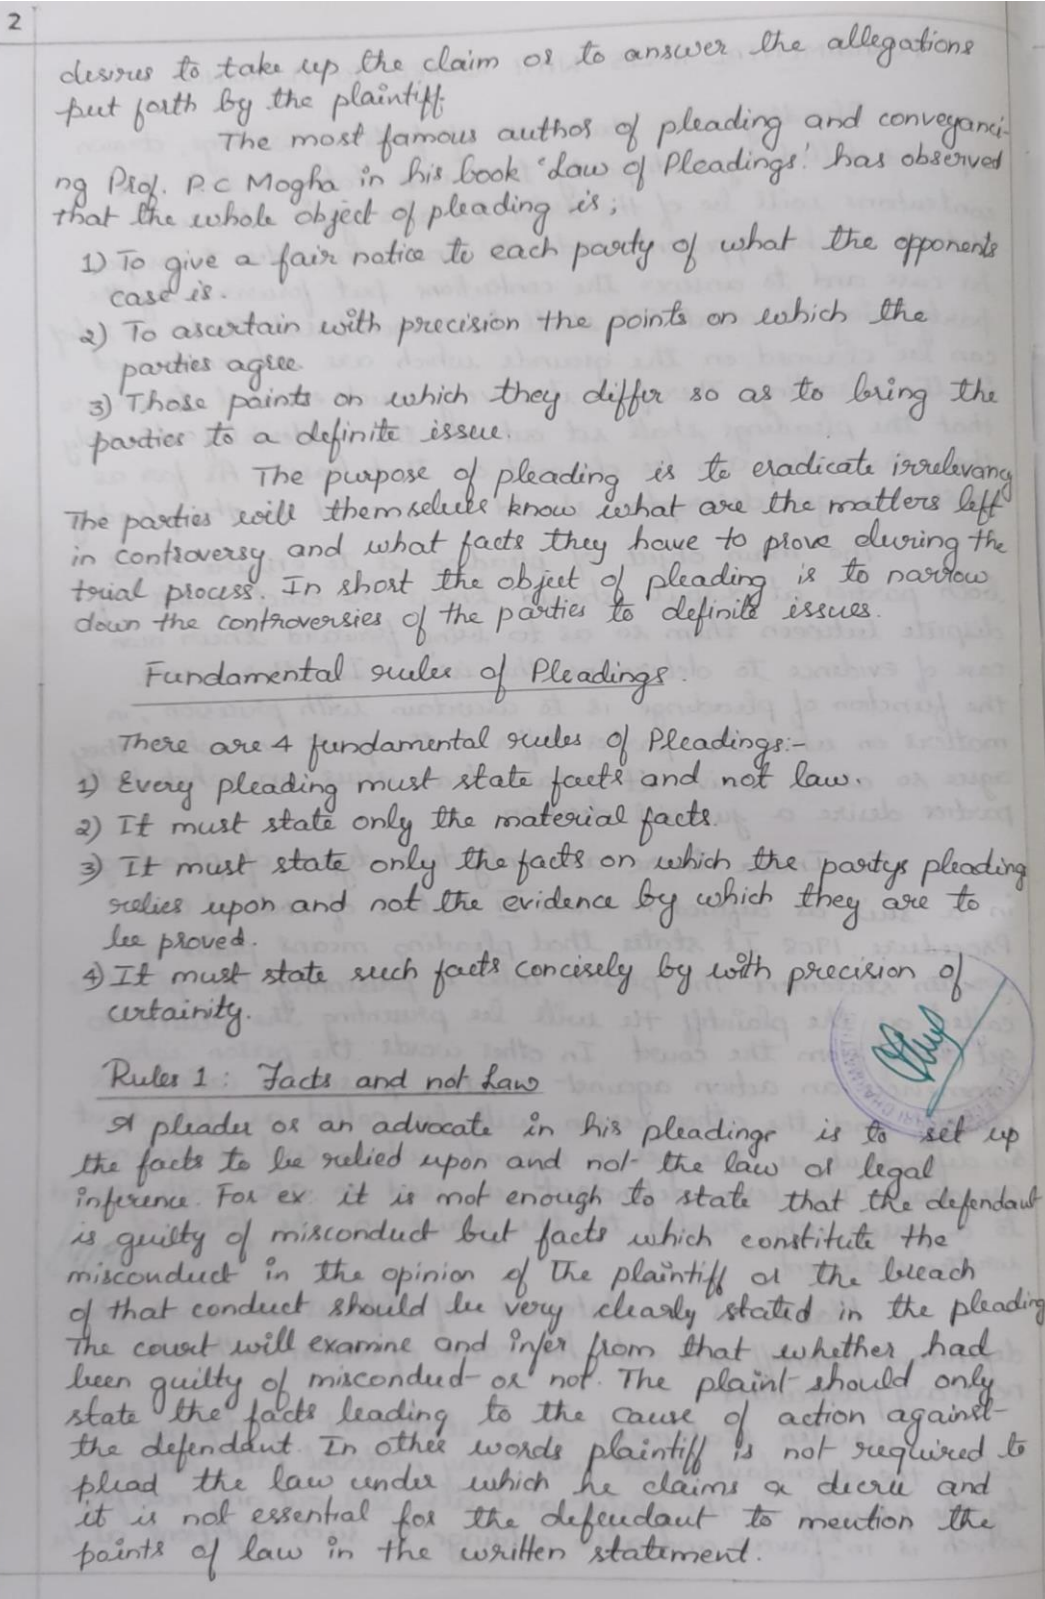 2
desires to take up the claim or to answer the allegations
put forth by the plaintiff.
The most famous author of pleading and conveyanci-
ng Prof. P.C Mogha in his book 'Law of Pleadings' has observed
that the whole object of pleading is;
1) To give a fair notice to each party of what the opponents
case is.
2) To ascertain with precision the points on which the
parties agree.
3) Those points on which they differ so as to bring the
parties to a definite issue.
The purpose of pleading is to eradicate irrelevancy
The parties will themselves know what are the matters left
in controversy and what facts they have to prove during the
trial process. In short the object of pleading is to narrow
down the controversies of the parties to definite issues.
Fundamental rules of Pleadings.
There are 4 fundamental rules of Pleadings:-
1) Every pleading must state facts and not law.
2) It must state only the material facts.
3) It must state only the facts on which the partys pleading
relies upon and not the evidence by which they are to
be proved.
4) It must state such facts concisely by with precision of
certainity.
Rules 1 : Facts and not Law
A pleader or an advocate in his pleadings is to set up
the facts to be relied upon and not the law or legal
inference. For ex: it is not enough to state that the defendant
is guilty of misconduct but facts which constitute the
misconduct in the opinion of the plaintiff or the breach
of that conduct should be very clearly stated in the pleading
The court will examine and infer from that whether had
been guilty of misconduct or not. The plaint should only
state the facts leading to the cause of action against
the defendant. In other words plaintiff is not required to
plead the law under which he claims a decree and
it is not essential for the defendant to mention the
points of law in the written statement.